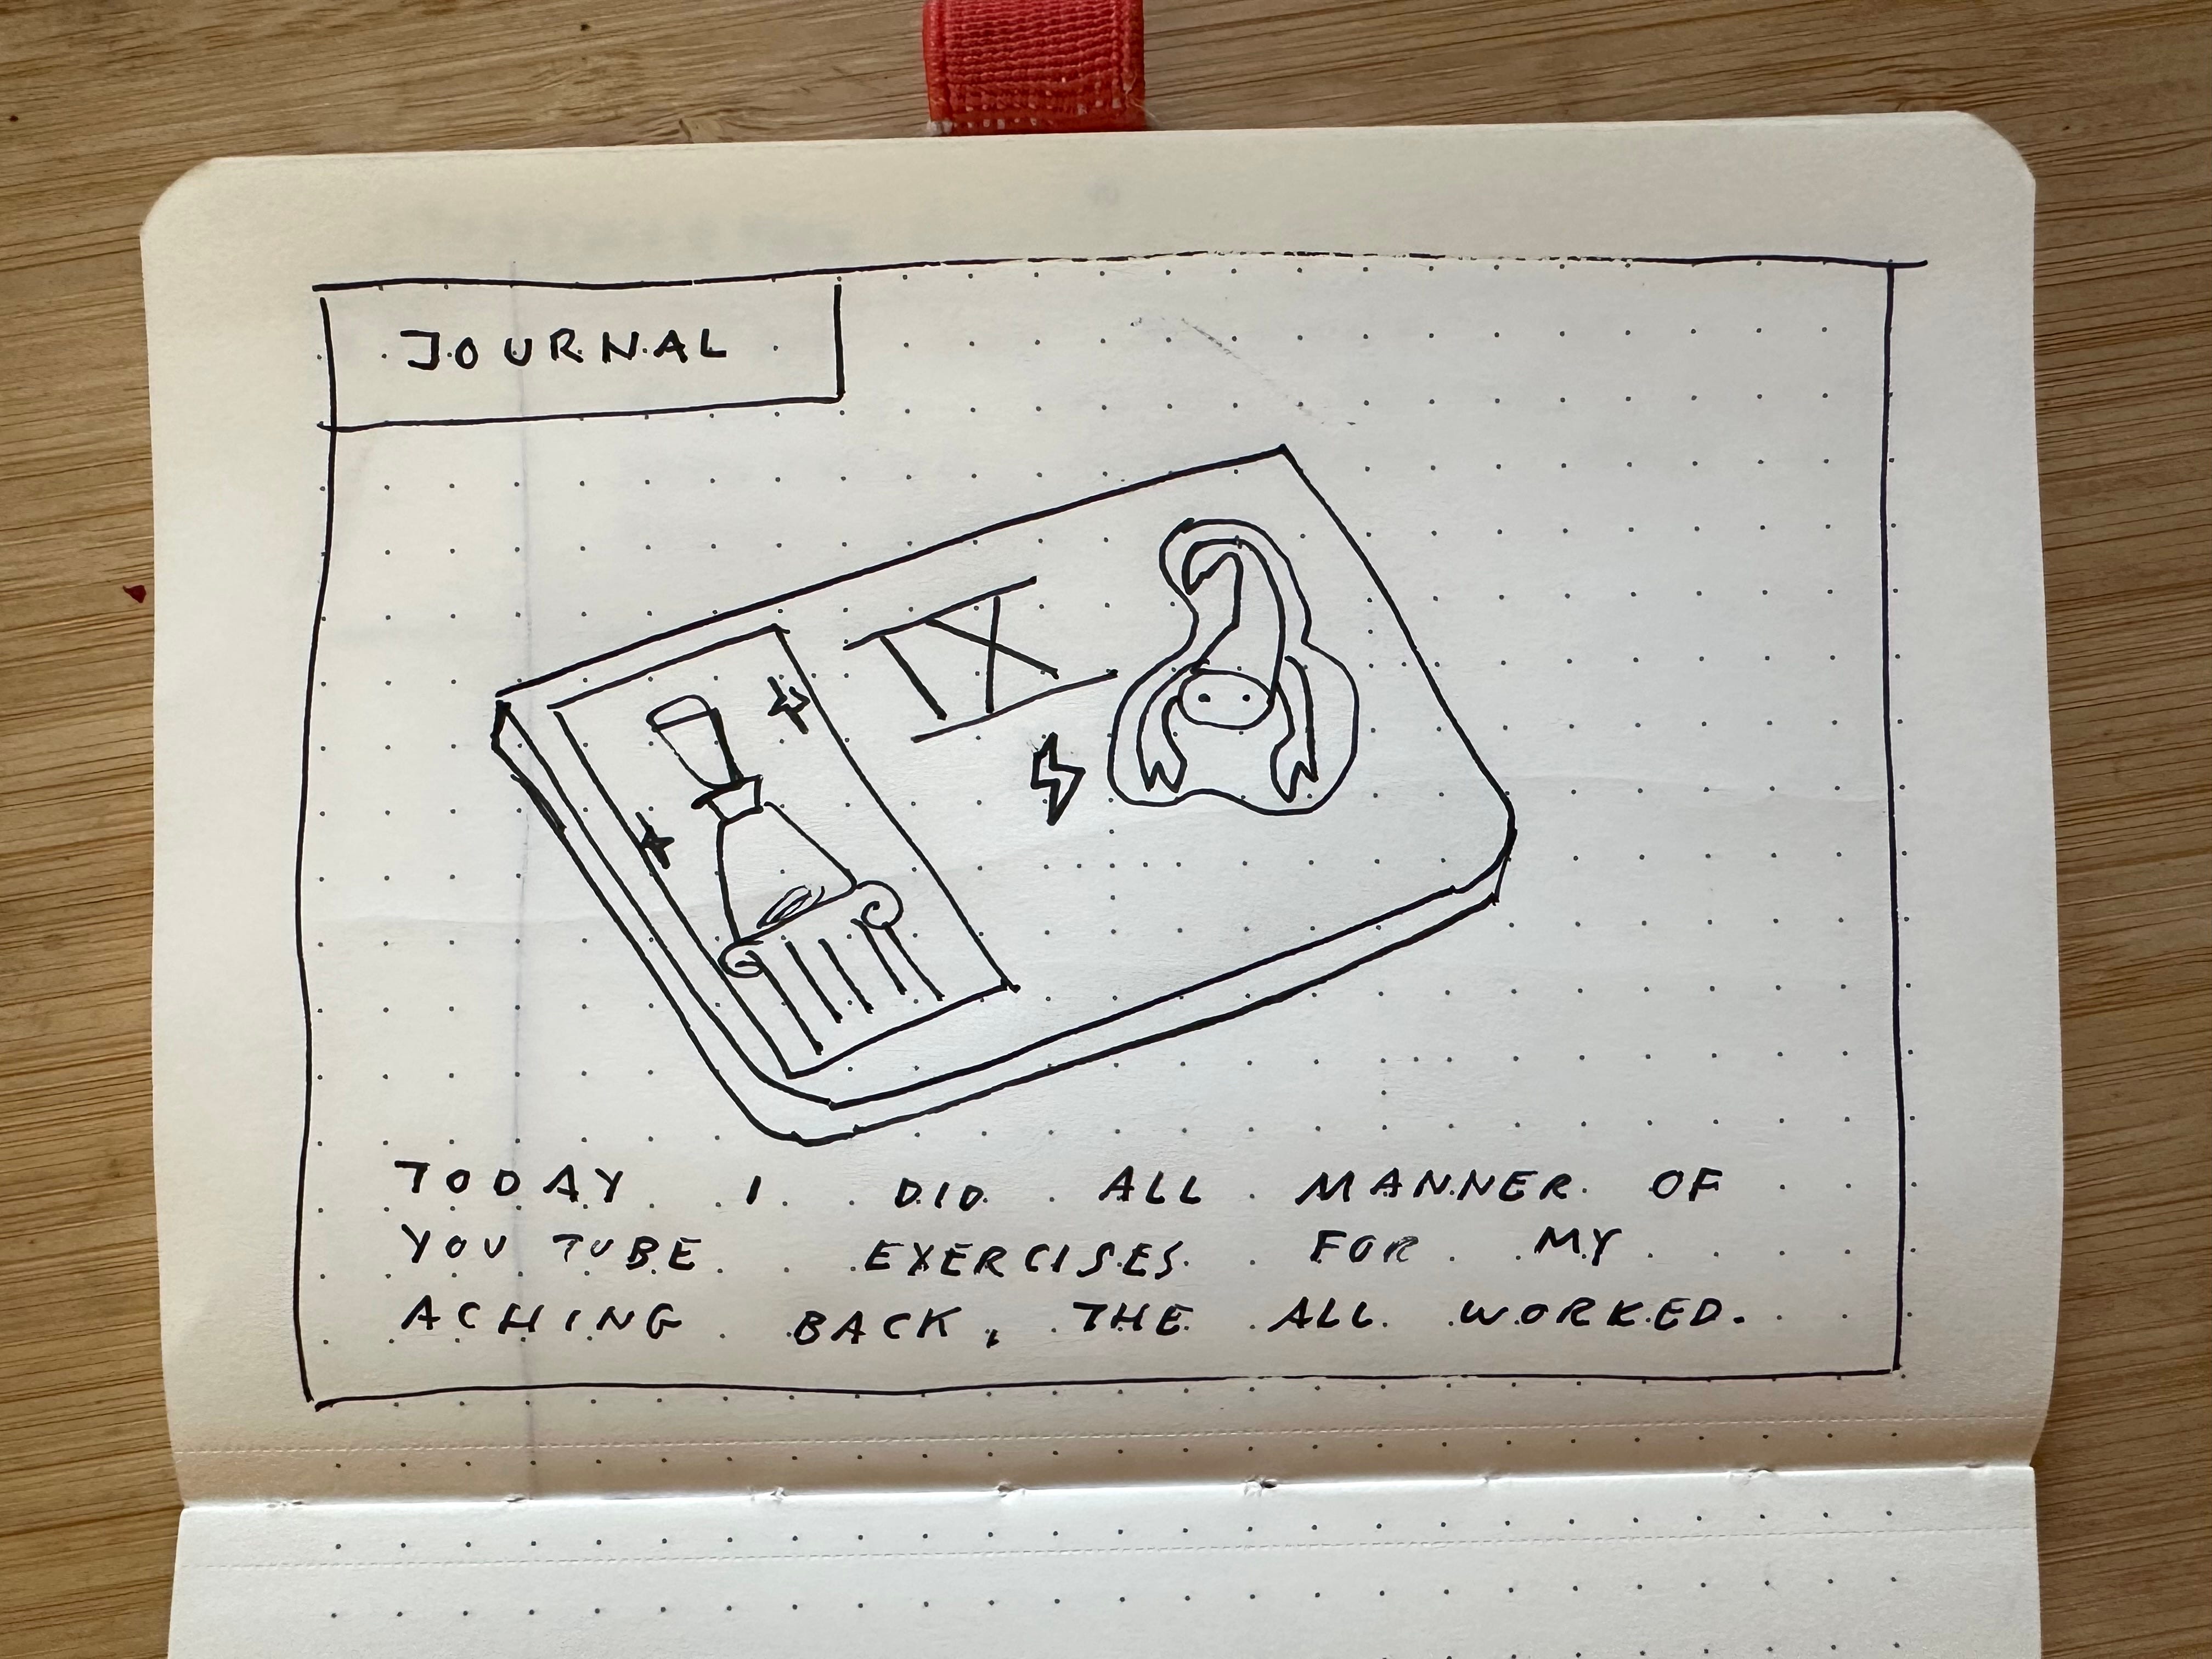 JOURNAL
IX
TODAY I DID ALL MANNER OF
YOU TUBE EXERCISES FOR MY
ACHING BACK, THE ALL WORKED.